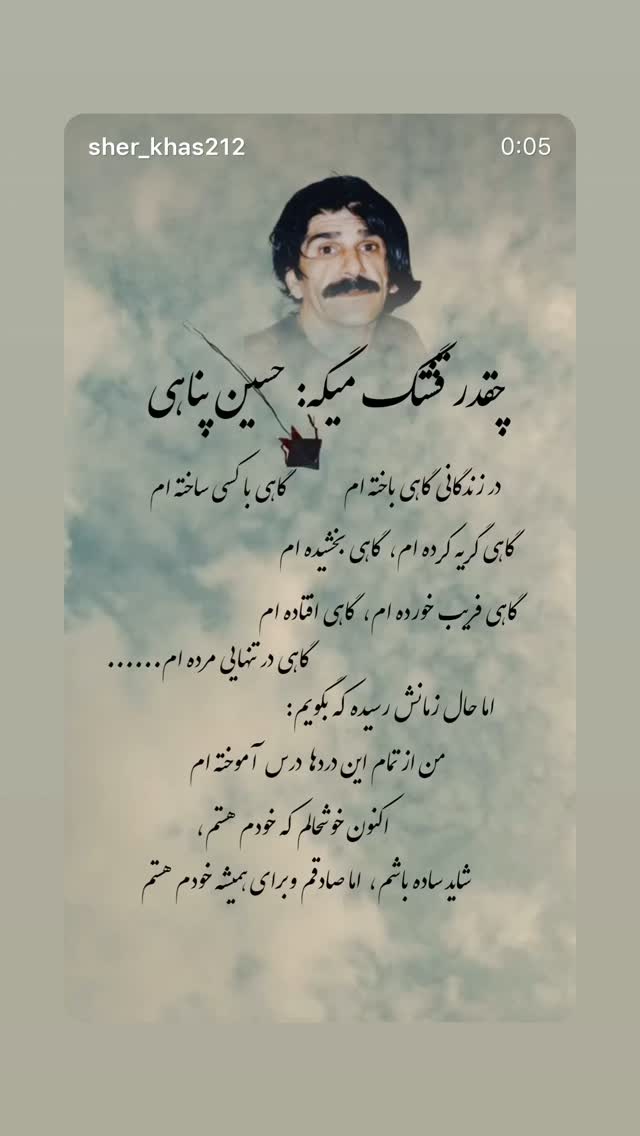 sher_khas212 0:05
چقدر قشنگ میگه: حسین پناهی
در زندگانی گاهی باخته ام گاهی با کسی ساخته ام
گاهی گریه کرده ام، گاهی بخشیده ام
گاهی فریب خورده ام، گاهی افتاده ام
گاهی در تنهایی مرده ام......
اما حال زمانش رسیده که بگویم:
من از تمام این دردها درس آموخته ام
اکنون خوشحالم که خودم هستم،
شاید ساده باشم، اما صادقم وبرای همیشه خودم هستم